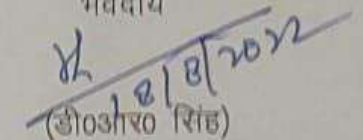 भवदीय
8/8/2022
(डी०आर० सिंह)